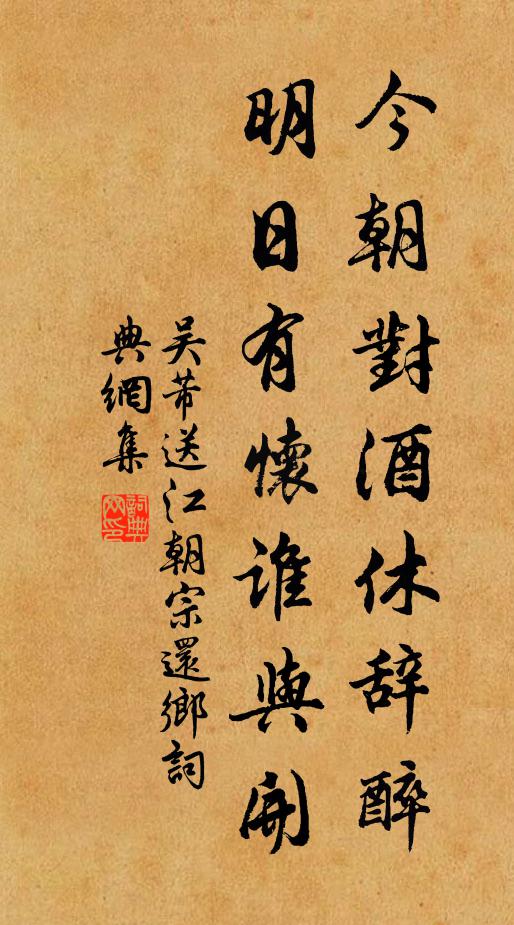 今朝對酒休辞醉
明日有懷誰與開
吴芾送江朝宗還鄉詞
典網集
詞典
网印